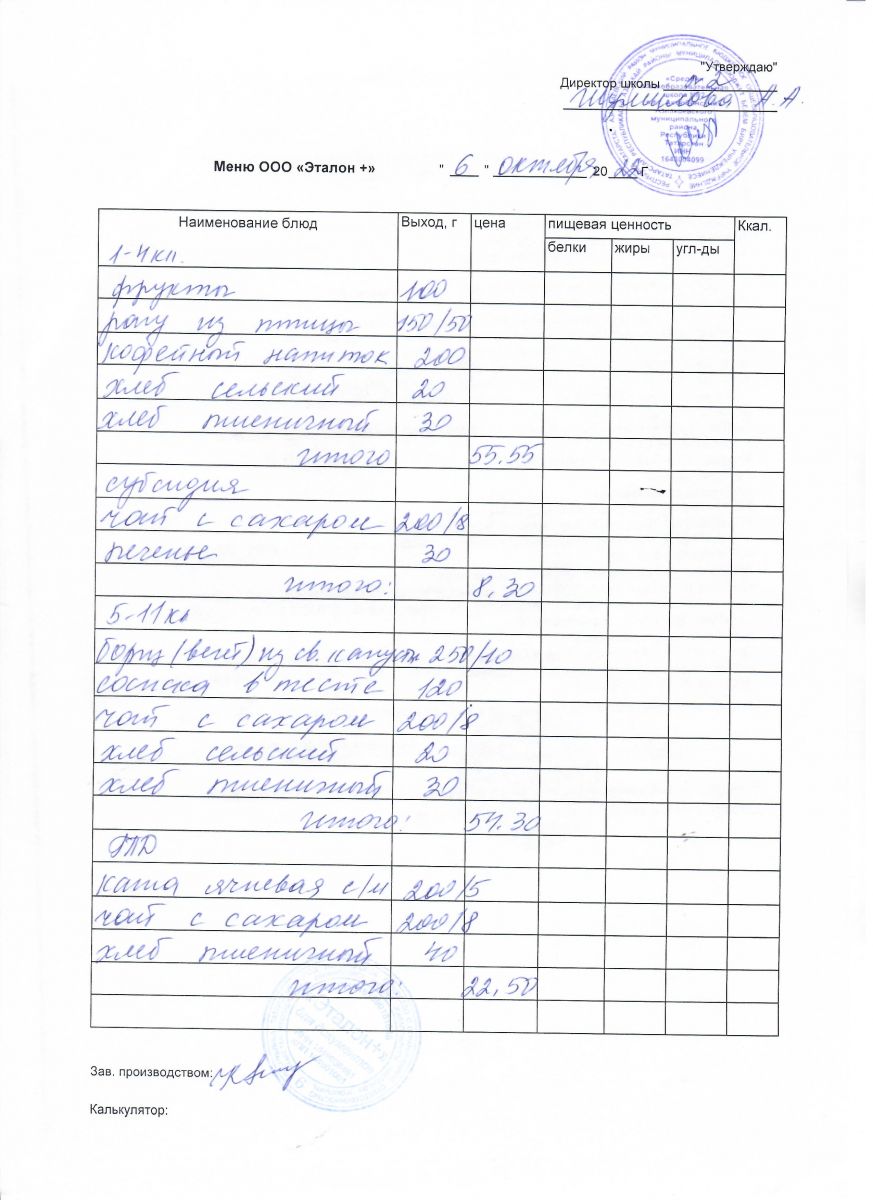 "Утверждаю"
Директор школы №2
А.А.
Меню ООО «Эталон +» " 6 " октября 2022 г
Наименование блюд Выход, г цена пищевая ценность Ккал.
белки жиры угл-ды
1-4кл.
фрукты 100
рагу из птицы 150/50
кофейный напиток 200
хлеб сельский 20
хлеб пшеничный 30
итого 55.55
субсидия
чай с сахаром 200/8
печенье 30
итого: 8,30
5-11кл
борщ (вегет) из св. капусты 250/10
сосиска в тесте 120
чай с сахаром 200/8
хлеб сельский 20
хлеб пшеничный 30
итого: 54.30
ГПД
каша ячневая с/м 200/5
чай с сахаром 200/8
хлеб пшеничный 40
итого: 22,50
«Эталон+»
Зав. производством:
Калькулятор: